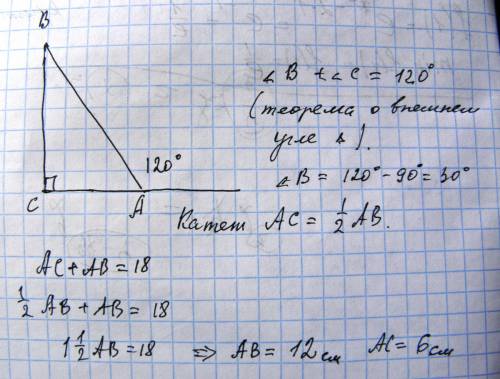 B
120°
C
A
∠B + ∠C = 120°
(теорема о внешнем
угле Δ).
∠B = 120° - 90° = 30°
Катет AC = 1/2 AB.
AC + AB = 18
1/2 AB + AB = 18
1 1/2 AB = 18 ⇒ AB = 12 см AC = 6 см